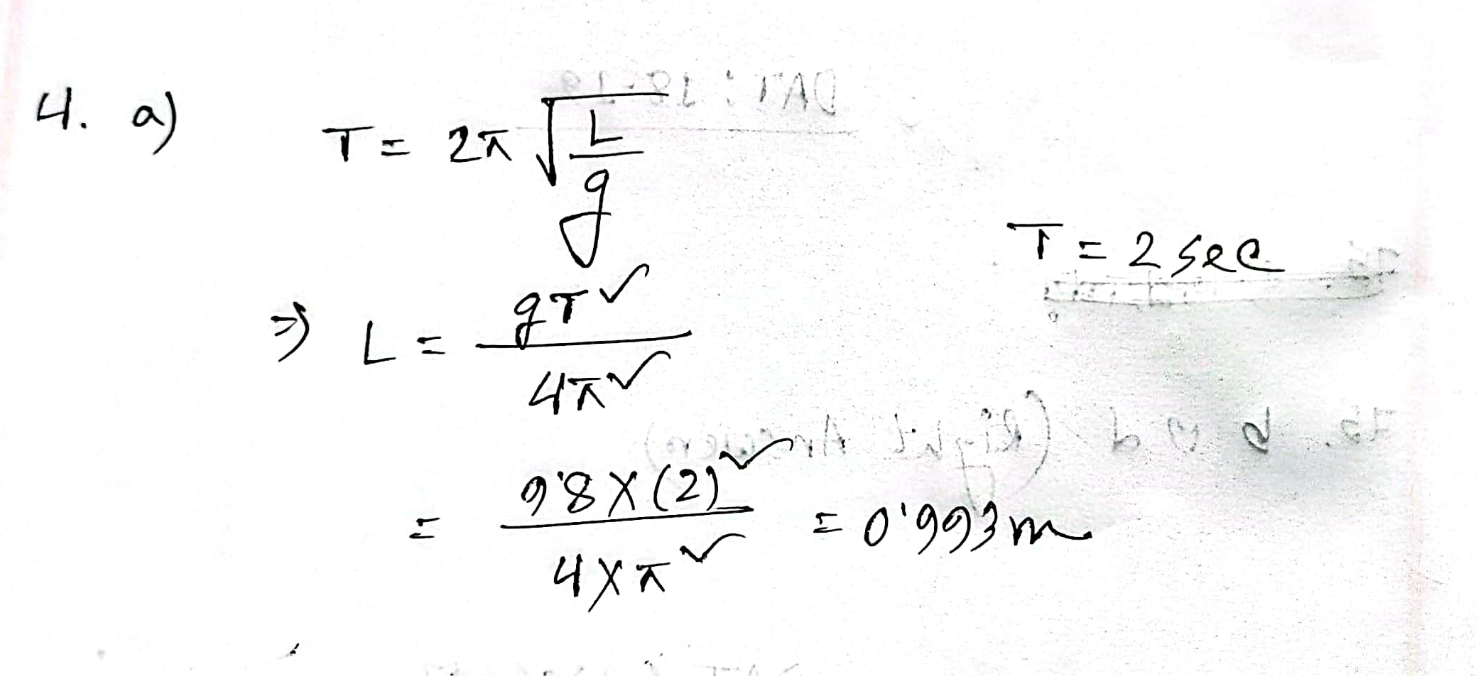 4. a) T = 2π √(L/g)
T = 2 sec
⇒ L = gT² / 4π²
= 9·8 × (2)² / 4 × π² = 0·993 m